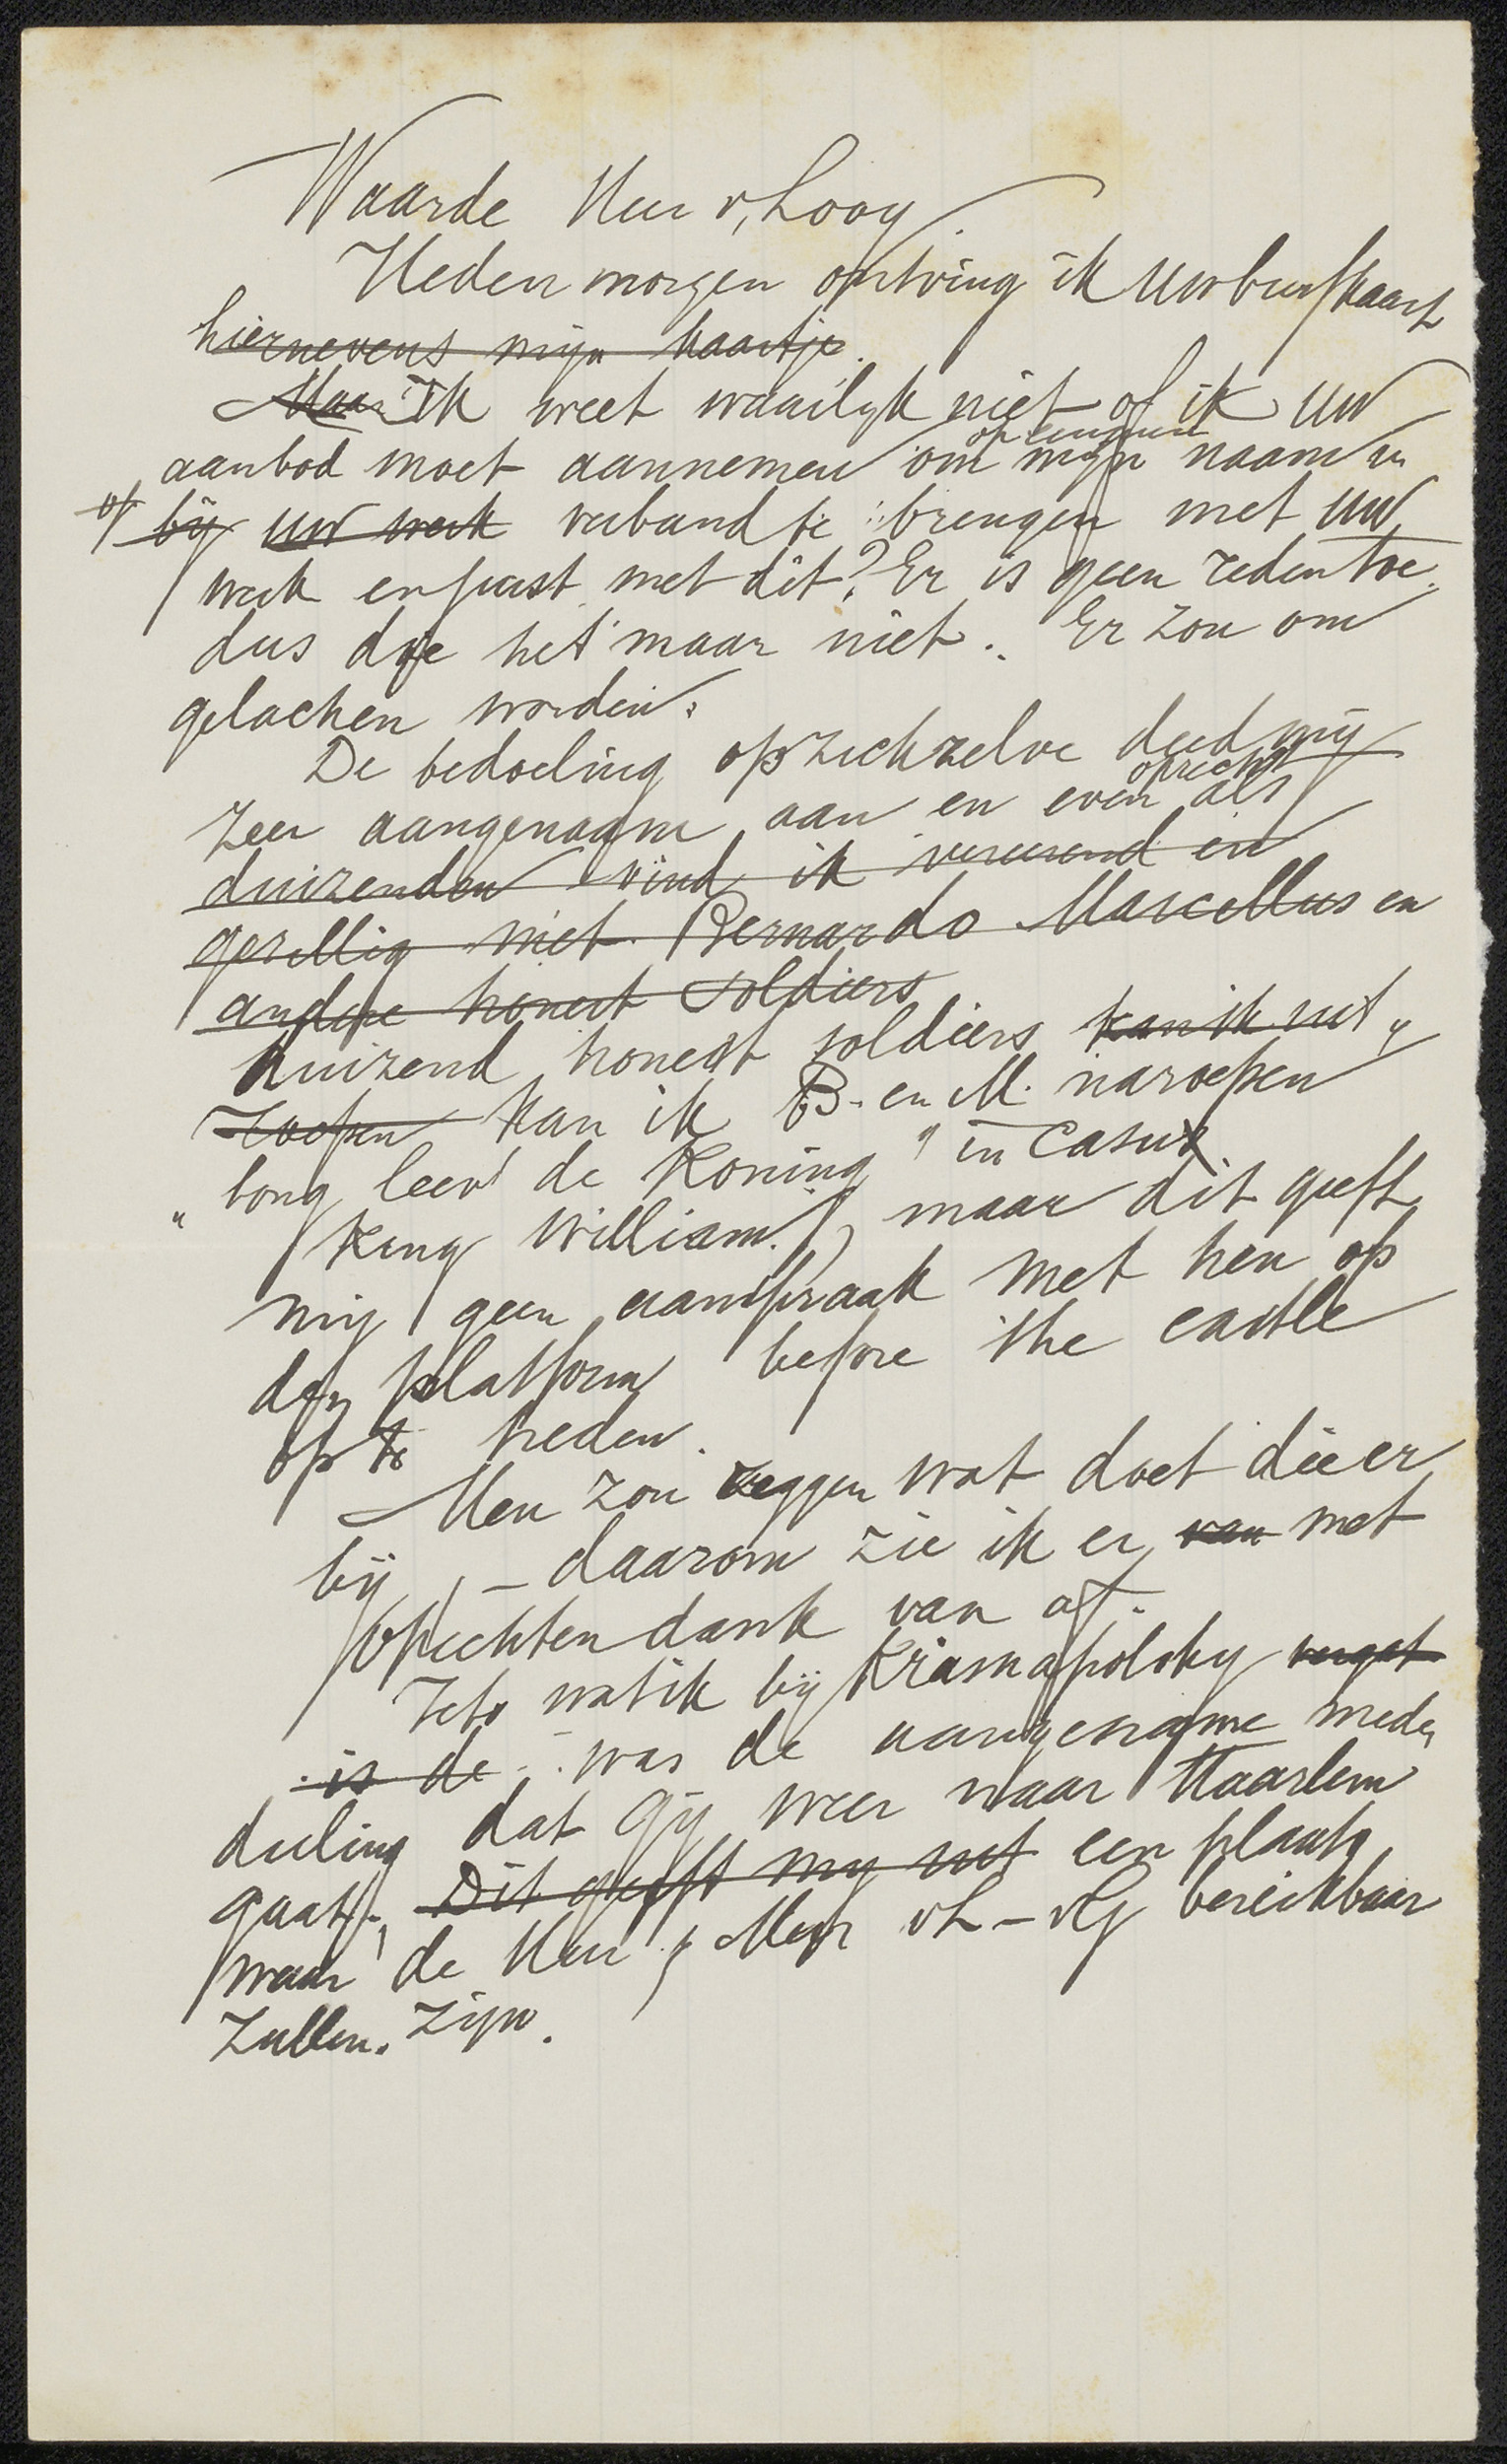 Waarde Heer v, Looy
Heden morgen ontving ik Uw briefkaart
hiernevens mijn kaartje.
Maar Ik weet waarlijk niet of ik Uw
aanbod moet aannemen om mijn naam in
of bij uw werk verband te brengen met uw
werk en juist met dit? Er is geen reden toe.
dus doe het maar niet. Er zou om
gelachen worden.
De bedoeling op zichzelve deed mij
oprecht
zeer aangenaam aan en even als
duizenden vind ik in
gezellig met Bernardo Marcellus en
andere honest soldiers
duizend honest soldiers kan ik uit
roepen kan ik B. en M. naroepen
"long leev' de Koning" in casu
King William, maar dit geeft
mij geen aanspraak met hen op
den platform before the castle
op te treden.
Men zou zeggen wat doet die er
bij, – daarom zie ik er van met
oprechten dank van af.
Iets wat ik bij Krasnapolsky vergat
is de was de aangename mede
deeling dat Gij weer naar Haarlem
gaat, Dit geeft mij uit een plaats
waar de Heer & Mevr vL – vG bereikbaar
zullen zijn.